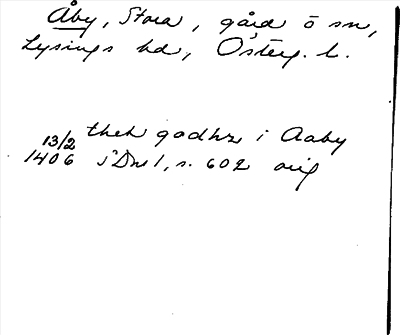 Åby, Stora, gård o sn,
Lysings hd, Österg. l.
13/2 theh godhz i Aaby
1406 SDns 1, s. 602 orig